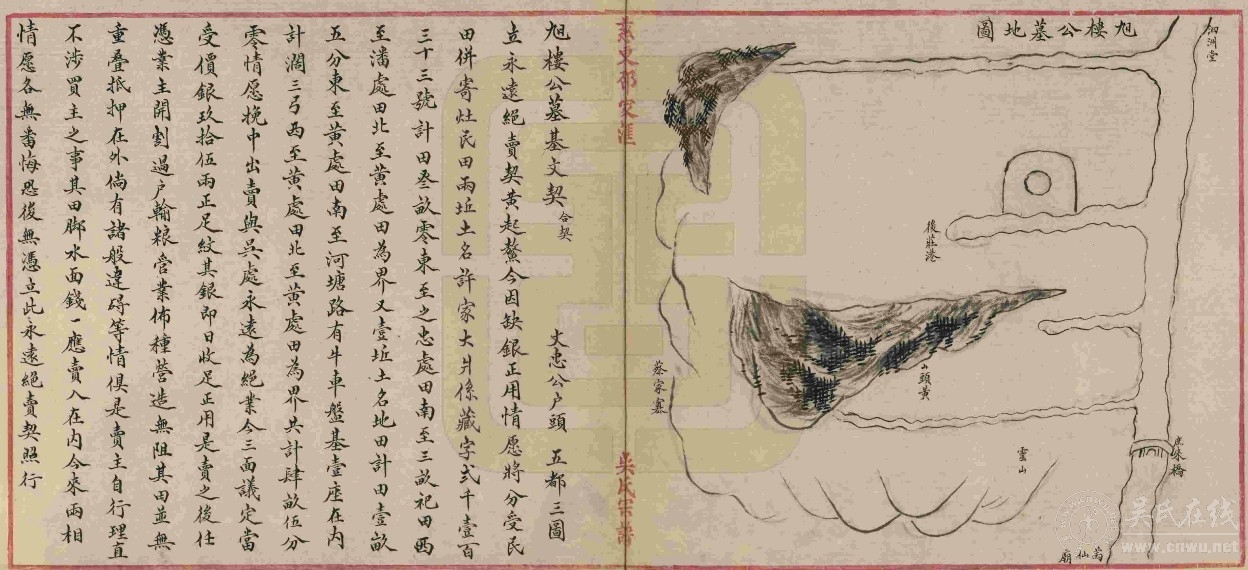 旭樓公墓地圖
泗洲堂
後莊港
山頭黃
蔡家寨
靈山
葛仙廟
慈東邵家滙
吳氏宗譜
旭樓公墓基文契 合契 文忠公户頭 五都三圖
立永遠絕賣契黃起鰲今因缺銀正用情愿將分受民
田併寄灶民田兩坵土名許家大爿係藏字弍千壹百
三十三號計田叁畝零東至之忠處田南至三畝祀田西
至潘處田北至黃處田為界又壹坵土名地田計田壹畝
五分東至黃處田南至河塘路有牛車盤基壹座在內
計濶三弓西至黃處田北至黃處田為界共計肆畝伍分
零情愿挽中出賣與吳處永遠為絕業今三面議定當
受價銀玖拾伍兩正足紋其銀即日收足正用是賣之後任
憑業主開割過戶輸粮管業佈種營造無阻其田並無
重叠抵押在外倘有諸般違碍等情俱是賣主自行理直
不涉買主之事其田脚水面錢一應賣入在內今來兩相
情愿各無番悔恐後無憑立此永遠絕賣契照行
吳氏在线
www.cnwu.net